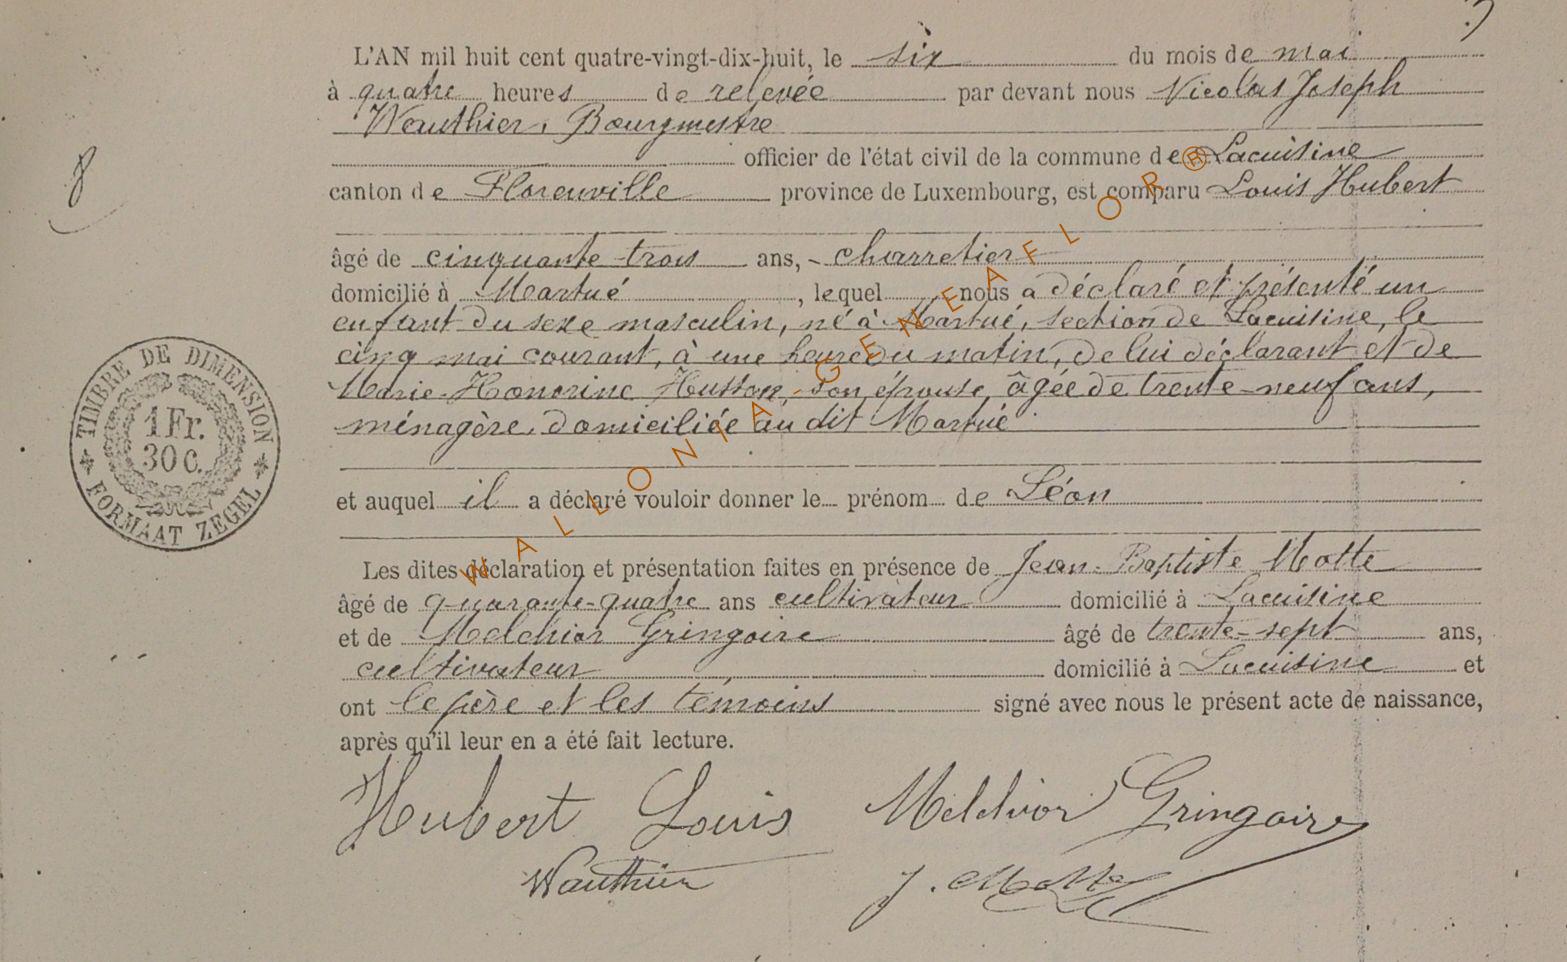 L'AN mil huit cent quatre-vingt-dix-huit, le six du mois de mai
à quatre heures de relevée par devant nous Nicolas Joseph
Wauthier, Bourgmestre
officier de l'état civil de la commune de Lacuisine
8
canton de Florenville province de Luxembourg, est comparu Louis Hubert
âgé de cinquante trois ans, charretier
domicilié à Martué, lequel nous a déclaré et présenté un
enfant du sexe masculin, né à Martué, section de Lacuisine, le
cinq mai courant, à une heure du matin, de lui déclarant et de
Marie-Honorine Husson, son épouse, âgée de trente-neuf ans,
ménagère, domiciliée au dit Martué
TIMBRE DE DIMENSION
1 Fr.
30 C.
FORMAAT ZEGEL
et auquel il a déclaré vouloir donner le prénom de Léon
Les dites déclaration et présentation faites en présence de Jean-Baptiste Motte
âgé de quarante-quatre ans cultivateur domicilié à Lacuisine
et de Melchior Gringoire âgé de trente-sept ans,
cultivateur domicilié à Lacuisine et
ont le père et les témoins signé avec nous le présent acte de naissance,
après qu'il leur en a été fait lecture.
Hubert Louis Melchior Gringoire
Wauthier J. Motte
WALLONIA-GENEAFLOR®